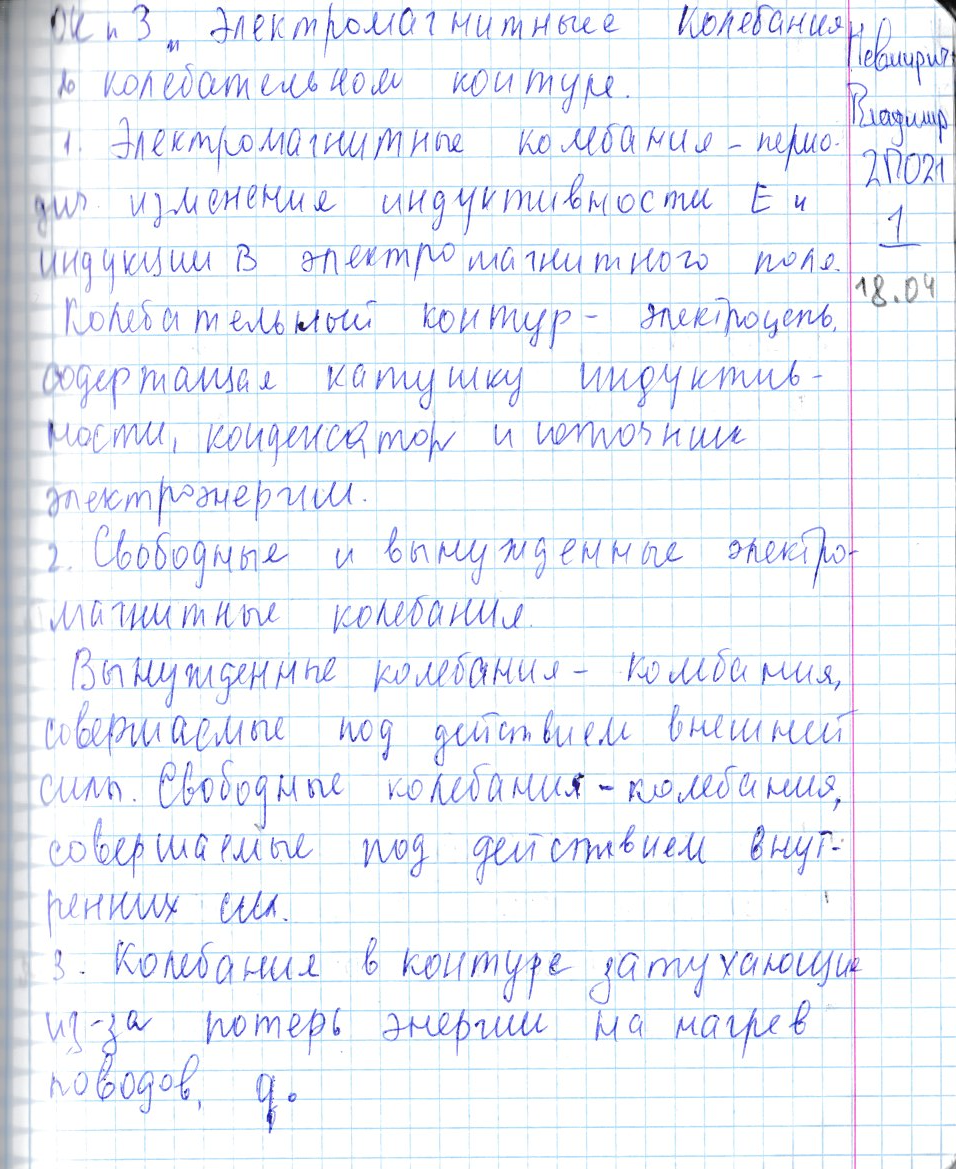 ОК п 3 „ Электромагнитные колебания
в колебательном контуре.
1. Электромагнитные колебания - перио-
дич изменения индуктивности Е и
индукции В электромагнитного поля.
Колебательный контур - электроцепь,
содержащая катушку индуктив-
ности, конденсатор и источник
электроэнергии.
2. Свободные и вынужденные электро-
магнитные колебания.
Вынужденные колебания - колебания,
совершаемые под действием внешней
силы. Свободные колебания - колебания,
совершаемые под действием внут-
ренних сил.
3. Колебания в контуре затухающие
из-за потерь энергии на нагрев
поводов, q.
Владимир
2П021
1
18.04